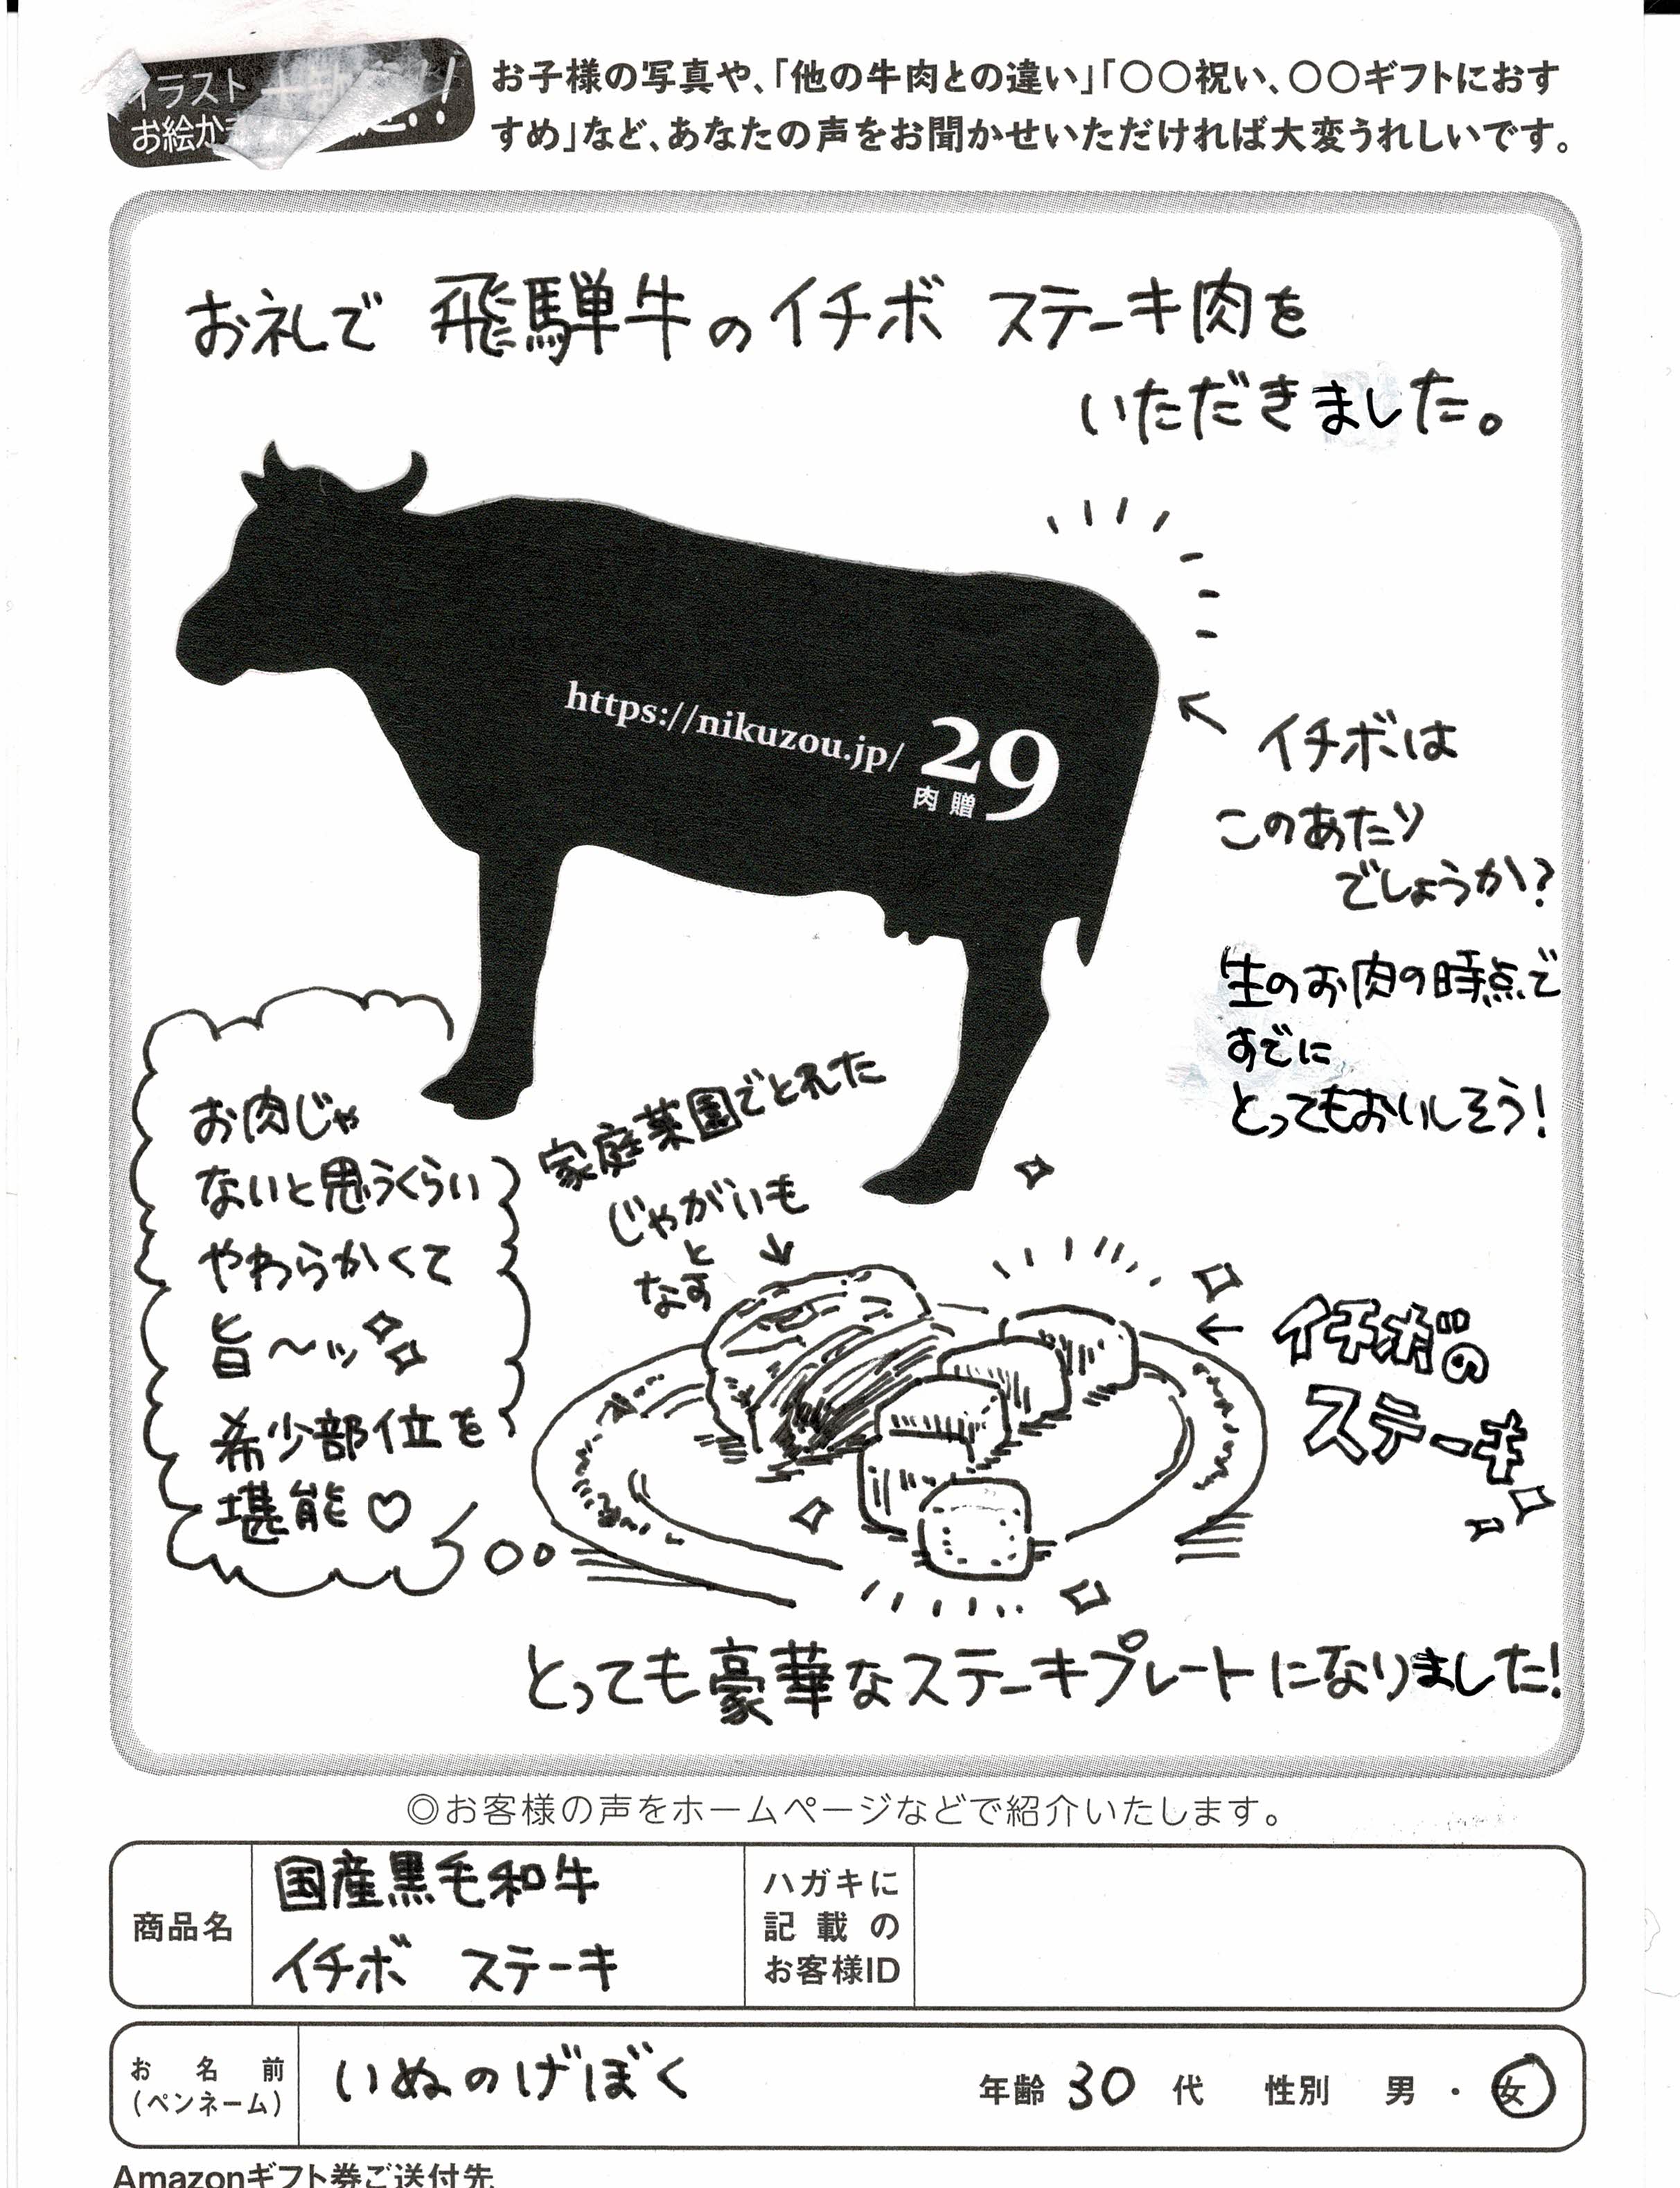 イラスト
お絵か
お子様の写真や、「他の牛肉との違い」「〇〇祝い、〇〇ギフトにおす
すめ」など、あなたの声をお聞かせいただければ大変うれしいです。
お礼で 飛騨牛のイチボ ステーキ肉を
いただきました。
https://nikuzou.jp/
29
肉贈
イチボは
このあたり
でしょうか?
生のお肉の時点で
すでに
とってもおいしそう!
お肉じゃ
ないと思うくらい
やわらかくて
旨〜ッ
希少部位を
堪能♡
家庭菜園でとれた
じゃがいも
と
なす
イチボの
ステーキ
とっても豪華なステーキプレートになりました!
◎お客様の声をホームページなどで紹介いたします。
商品名
国産黒毛和牛
イチボ ステーキ
ハガキに
記載の
お客様ID
お名前
(ペンネーム)
いぬのげぼく
年齢 30 代 性別 男・女
Amazonギフト券ご送付先